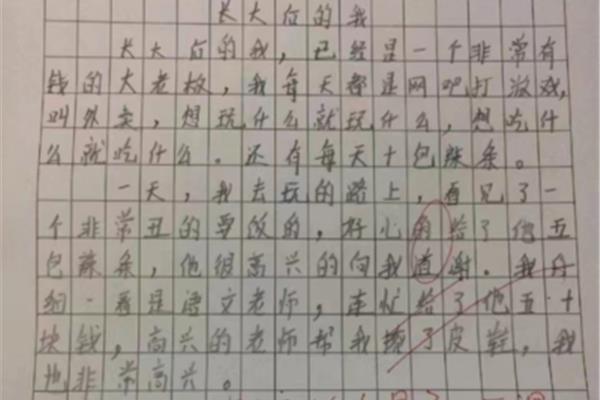 长大后的我
长大后的我，已经是一个非常有
钱的大老板，我每天都是网吧打游戏，
叫外卖，想玩什么就玩什么，想吃什
么就吃什么。还有每天十包辣条。
一天，我去玩的路上，看见了一
个非常丑的要饭的，好心的给了他五
包辣条，他很高兴的向我道谢。我仔
细一看是语文老师，连忙给了他五十
块钱，高兴的老师帮我擦了皮鞋，我
也非常高兴。